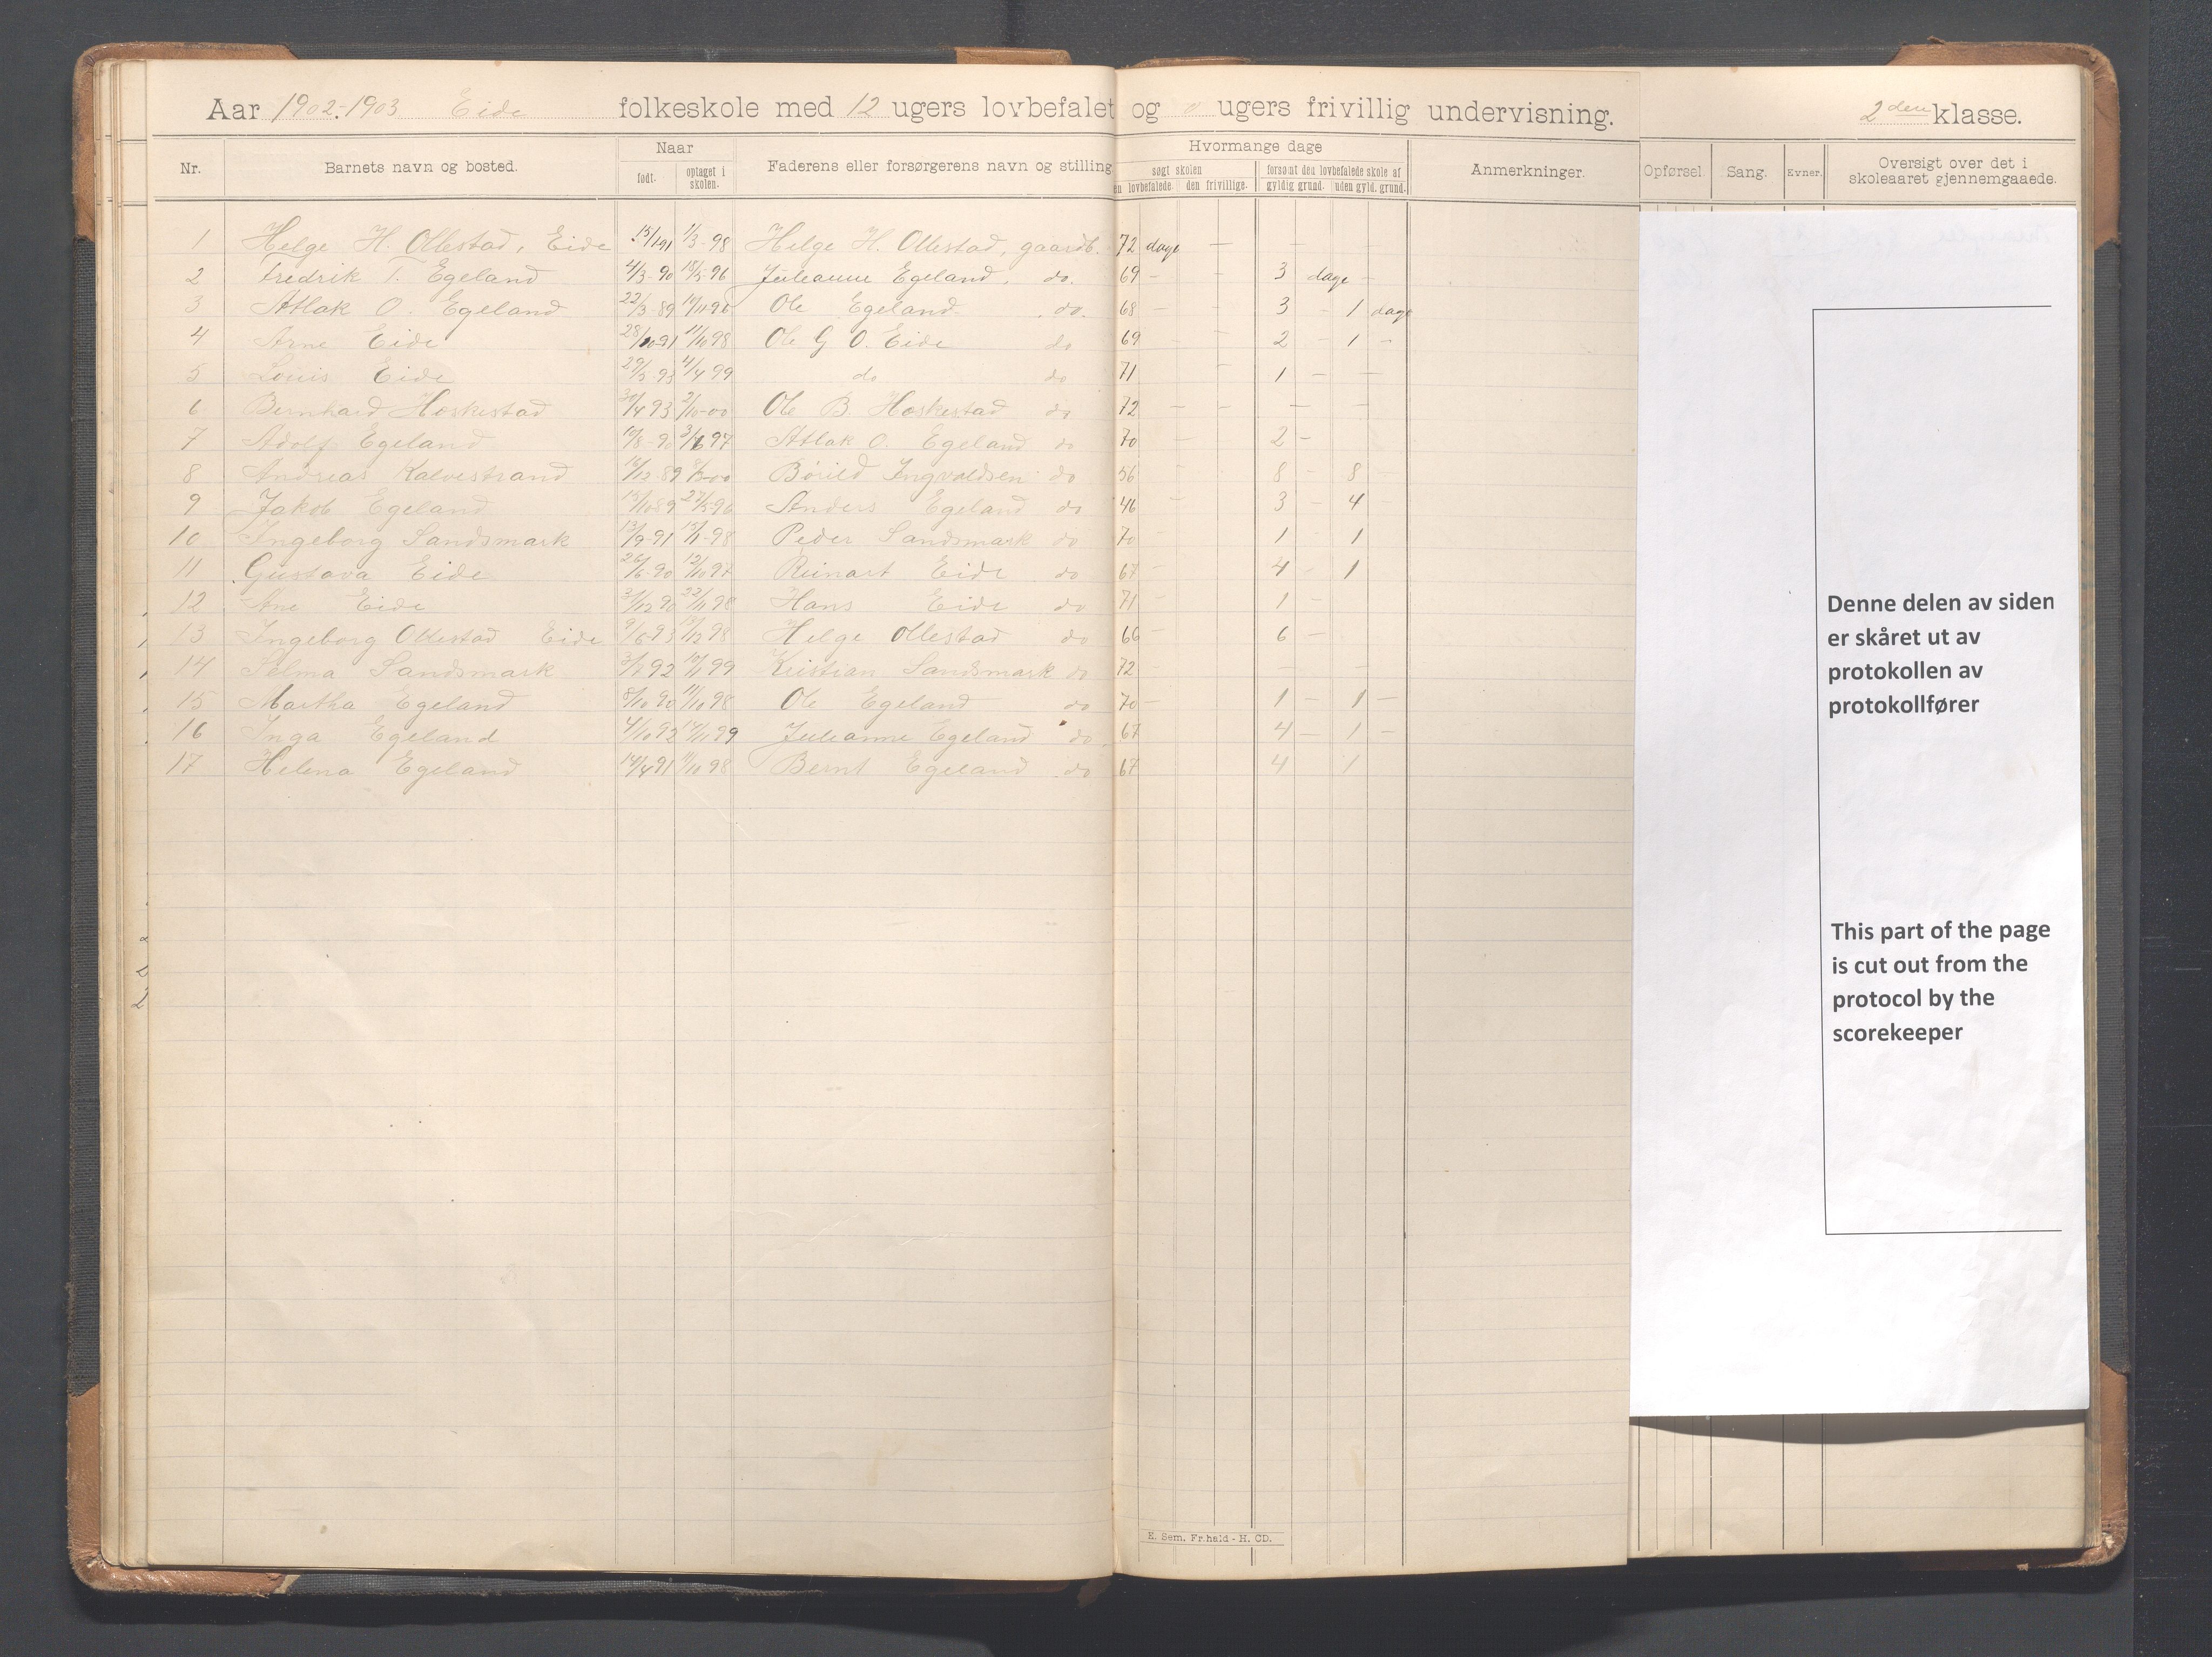 Aar 1902-1903 Eide folkeskole med 12 ugers lovbefalet og 0 ugers frivillig undervisning. 2den klasse.
Nr. Barnets navn og bosted. Naar født. optaget i skolen. Faderens eller forsørgerens navn og stilling Hvormange dage søgt skolen en lovbefalede. den frivillige. forsømt den lovbefalede skole af gyldig grund. uden gyld. grund. Anmerkninger. Opførsel. Sang. Evner. Oversigt over det i skoleaaret gjennemgaaede.
1 Helge H. Ollestad, Eide 15/1 91 1/3-98 Helge H. Ollestad, gaardb. 72 dage — — —
2 Fredrik T. Egeland 4/3-90 15/5-96 Juleanne Egeland, do. 69 - - 3 dage -
3 Atlak O. Egeland 22/3-89 Ole Egeland do. 68 - - 3 - 1 dage
4 Arne Eide 28/10-91 11/10 98 Ole G O. Eide do 69 - - 2 - 1 -
5 Louis Eide 29/5-93 4/4 99 do do 71 - 1 - -
6 Bernhard Hoskestad 30/4 93 2/10-00 Ole B. Hoskestad do 72 - - - -
7 Adolf Egeland 10/8-90 97 Atlak O. Egeland do 70 - 2 -
8 Andreas Kalvestrand 89 Børild Ingvaldsen do 56 8 - 8 -
9 Jakob Egeland 27/5-96 Anders Egeland do 46 - 3 - 4
10 Ingeborg Sandsmark 13/9-91 Peder Sandsmark do 70 - 1 - 1
11 Gustava Eide 26/6-90 12/10 97 Reinart Eide do 67 - 4 - 1
12 Ane Eide 22/11 98 Hans Eide do 71 - 1 -
13 Ingeborg Ollestad Eide 9/6-93 13/12 98 Helge Ollestad do 66 - 6 -
14 Selma Sandsmark 92 99 Kristian Sandsmark do 72 - - -
15 Martha Egeland 8/10 90 11/10 98 Ole Egeland do 70 - 1 - 1 -
16 Inga Egeland 4/10 92 14/11 99 Juleanne Egeland do 67 4 - 1 -
17 Helena Egeland 14/4 91 11/10 98 Bernt Egeland do 67 4 1
E. Sem. Fr.hald - H. CD.
Denne delen av siden
er skåret ut av
protokollen av
protokollfører
This part of the page
is cut out from the
protocol by the
scorekeeper